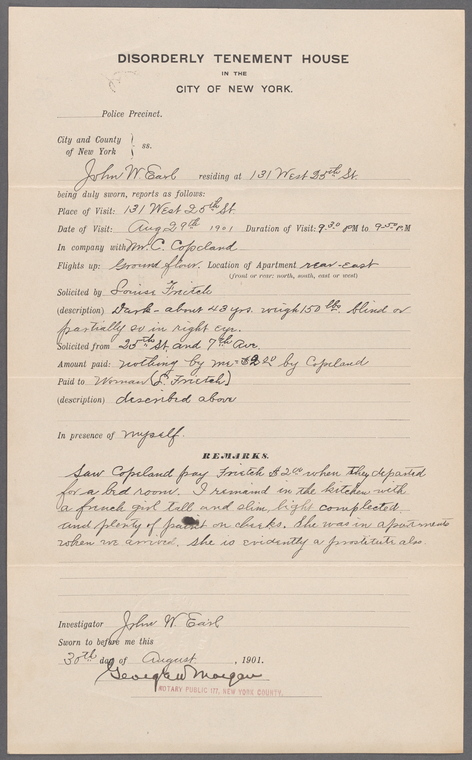 DISORDERLY TENEMENT HOUSE
IN THE
CITY OF NEW YORK.
Police Precinct.
City and County
of New York } ss.
John W Earl residing at 131 West 25th St.
being duly sworn, reports as follows:
Place of Visit: 131 West 25th St
Date of Visit: Aug 29th 1901 Duration of Visit: 9.30 PM to 9.50 P.M
In company with M. C. Copeland
Flights up: Ground floor. Location of Apartment rear-east
(front or rear; north, south, east or west)
Solicited by Louise Frietch
(description) Dark - about 43 yrs. weigh 150 lbs. blind or
partially so in right eye.
Solicited from 25th St. and 7th Ave.
Amount paid: nothing by me = $2.00 by Copeland
Paid to Woman (L Frietch)
(description) described above
In presence of myself.
REMARKS.
Saw Copeland pay Frietch $2.00 when they departed
for a bed room. I remaind in the kitchen with
a french girl tall and slim, light complected
and plenty of paint on cheeks. She was in apartments
when we arrived. She is evidently a prostitute also.
Investigator John W. Earl
Sworn to before me this
30th day of August, 1901.
George W Morgan
NOTARY PUBLIC 177, NEW YORK COUNTY.